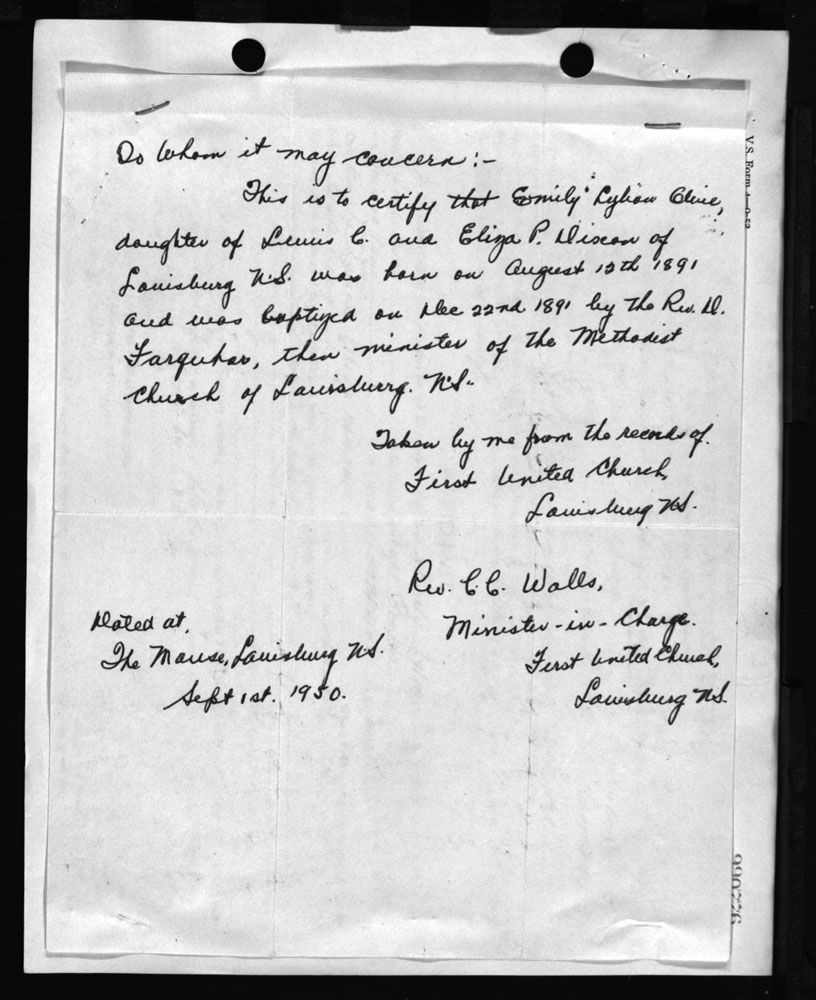 To Whom it may concern:-
This is to certify that Emily Lylian Olive,
daughter of Lewis C. and Eliza P. Dixson of
Louisburg N.S. was born on August 12th 1891
and was baptized on Dec 22nd 1891 by the Rev. D.
Farquhar, then minister of the Methodist
Church of Louisburg. N.S.
Taken by me from the records of.
First United Church,
Louisburg N.S.
Rev. C.C. Walls,
Dated at,
Minister-in-Charge.
The Manse, Louisburg N.S.
First United Church,
Sept 1st. 1950.
Louisburg N.S.
V.S. Form